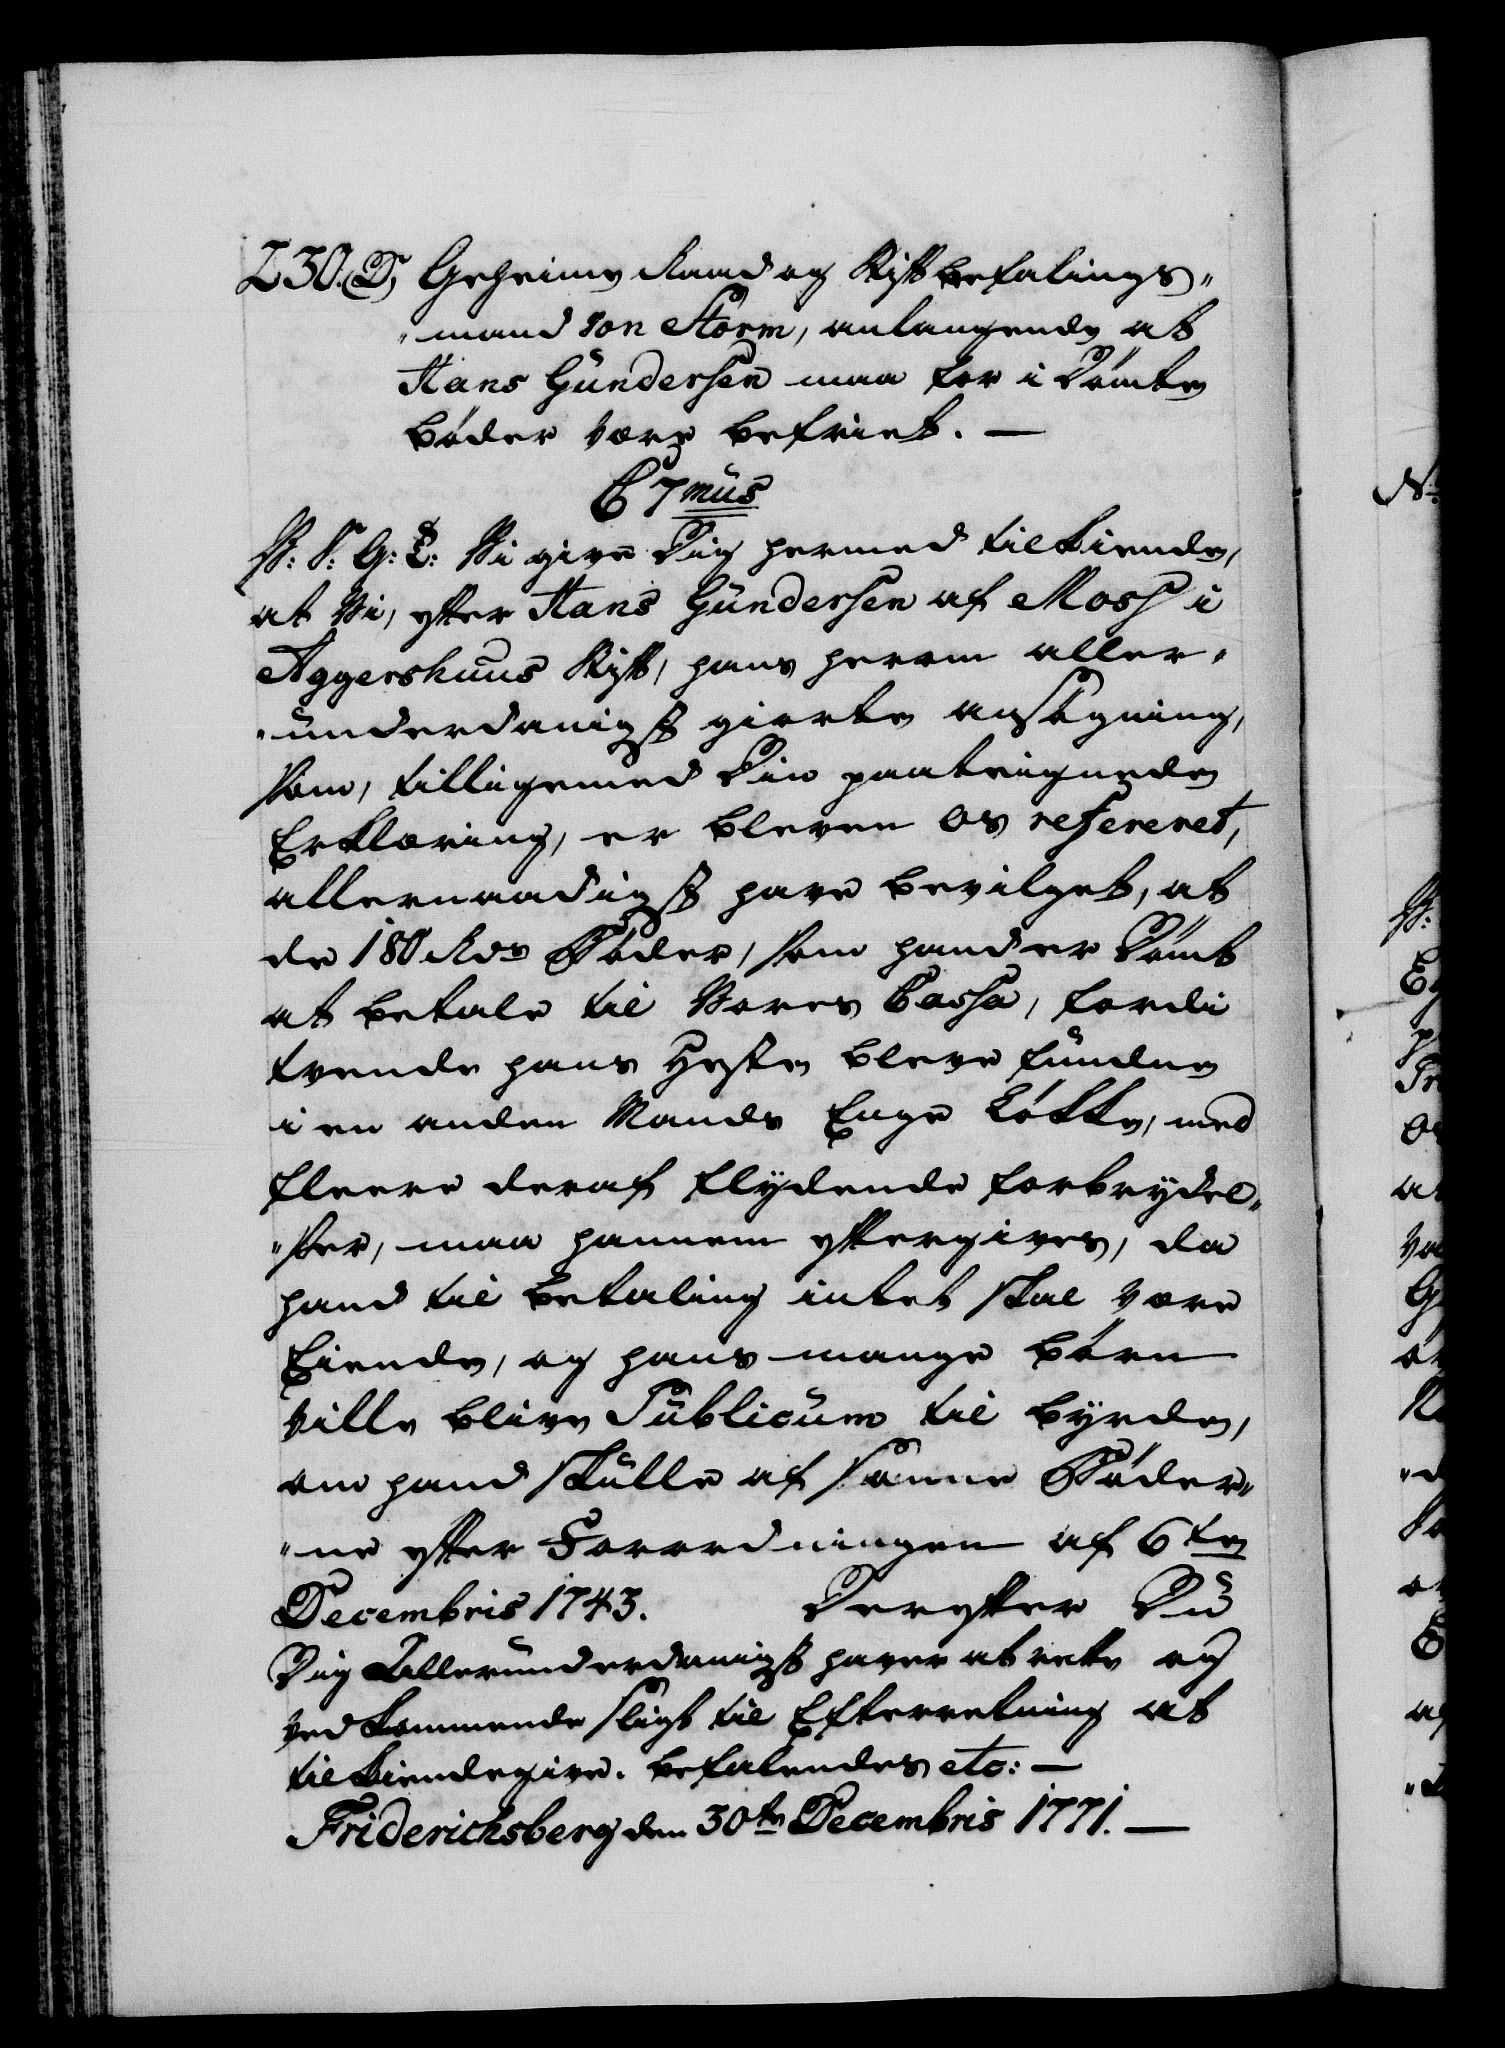 230. T, Geheime Raad og Stiftbefalings„
„mand von Storm, anlangende at
Hans Gündersen maa for i Dömte
böder være befriet. —
C 7mus
P: T: G: T: Vi give Dig hermed tilkiende,
at Vi, efter Hans Gündersen af Moss i
Aggershuus Stift, hans herom aller„
„ünderdanigst giorte ansögning,
som, tilligemed Din paategnede
Erklæring, er bleven os refereret,
allernaadigst have bevilget, at
de 180 Rdr Böder, som hand er Dömt
at betale til Vores Cassa, fordi
tvende hans Heste bleve fündne
i en anden Mands Enge Lökke, med
fleere deraf flÿdende forbrÿdel„
„ser, maa hannem eftergives, da
hand til betaling intet skal være
Eiende, og hans mange börn
ville blive Publicum til bÿrde,
om hand skulle af sonne Böder„
„ne efter Forordningen af 6te
Decembris 1743. Derefter Dü
Dig Alleründerdanigst haver at rette og
vedkommende sligt til Efterretning at
tilkiendegive. befalendes etc: —
Friderichsberg den 30te Decembris 1771. —